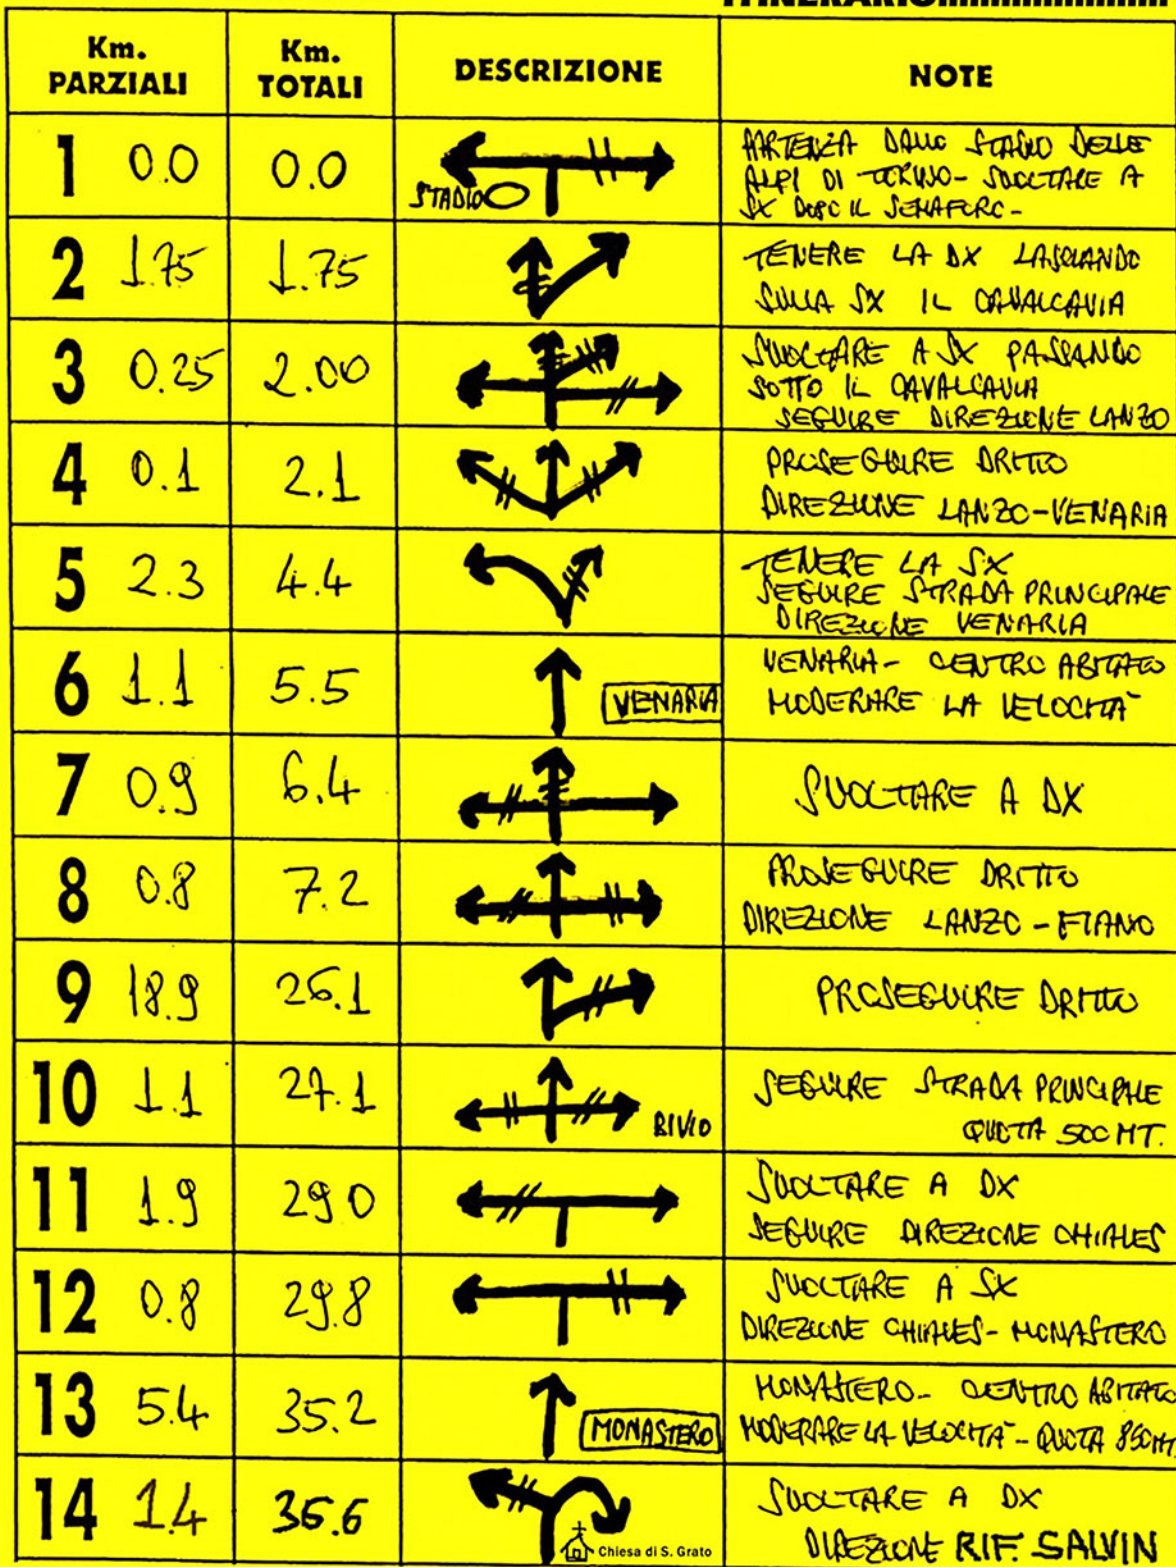 ITINERARIO
Km. PARZIALI
Km. TOTALI
DESCRIZIONE
NOTE
1 0.0 0.0
STADIO
PARTENZA DALLO STADIO DELLE
ALPI DI TORINO - SVOLTARE A
SX DOPO IL SEMAFORO -
2 1.75 1.75
TENERE LA DX LASCIANDO
SULLA SX IL CAVALCAVIA
3 0.25 2.00
SVOLTARE A SX PASSANDO
SOTTO IL CAVALCAVIA
SEGUIRE DIREZIONE LANZO
4 0.1 2.1
PROSEGUIRE DRITTO
DIREZIONE LANZO-VENARIA
5 2.3 4.4
TENERE LA SX
SEGUIRE STRADA PRINCIPALE
DIREZIONE VENARIA
6 1.1 5.5
VENARIA
VENARIA - CENTRO ABITATO
MODERARE LA VELOCITÀ
7 0.9 6.4
SVOLTARE A DX
8 0.8 7.2
PROSEGUIRE DRITTO
DIREZIONE LANZO - FIANO
9 18.9 26.1
PROSEGUIRE DRITTO
10 1.1 27.1
BIVIO
SEGUIRE STRADA PRINCIPALE
QUOTA 500 MT.
11 1.9 29.0
SVOLTARE A DX
SEGUIRE DIREZIONE CHIALES
12 0.8 29.8
SVOLTARE A SX
DIREZIONE CHIALES - MONASTERO
13 5.4 35.2
MONASTERO
MONASTERO - CENTRO ABITATO
MODERARE LA VELOCITÀ - QUOTA 850 MT.
14 1.4 36.6
Chiesa di S. Grato
SVOLTARE A DX
DIREZIONE RIF. SALVIN